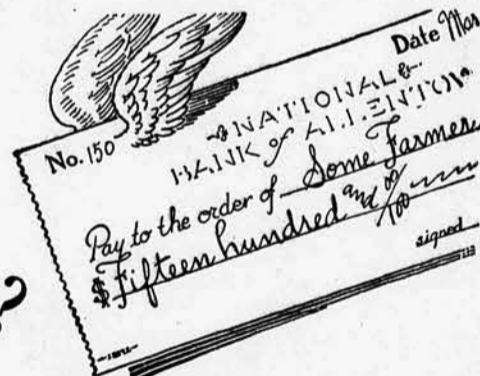 Date Mar
No. 150
NATIONAL &
BANK of ALLENTOW
Pay to the order of Some Farmer
$ Fifteen hundred and 00/100
signed
?